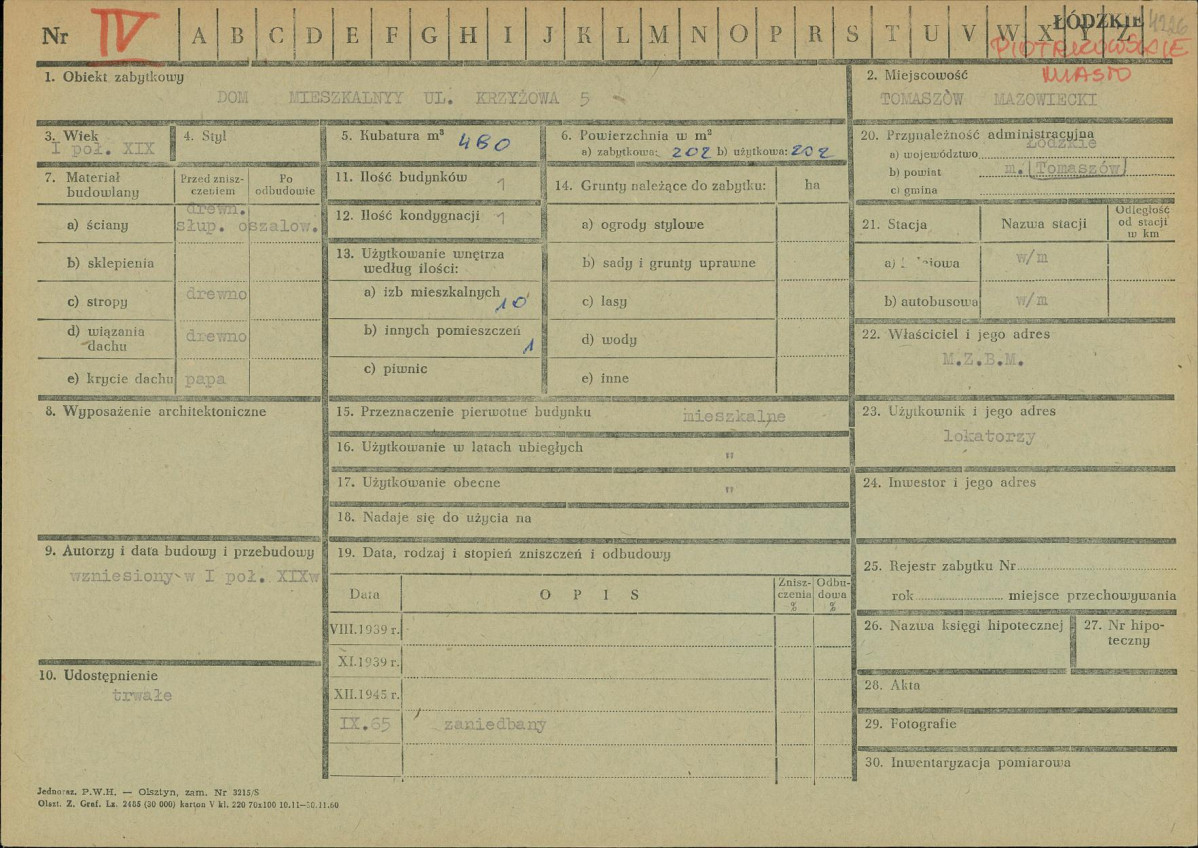 Nr IV A B C D E F G H I J K L M N O P R S T U V W X Y Z ŁÓDZKIE 4226
PIOTRKOWSKIE
MIASTO
1. Obiekt zabytkowy
DOM MIESZKALNYY UL. KRZYŻOWA 5
2. Miejscowość
TOMASZÓW MAZOWIECKI
3. Wiek
I poł. XIX
4. Styl
5. Kubatura m³ 480
6. Powierzchnia w m²
a) zabytkowa: 202 b) użytkowa: 202
20. Przynależność administracyjna
a) województwo Łódzkie
b) powiat m. Tomaszów
c) gmina
7. Materiał budowlany
Przed zniszczeniem
Po odbudowie
a) ściany drewn.
słup. oszalow.
b) sklepienia
c) stropy drewno
d) wiązania dachu drewno
e) krycie dachu papa
11. Ilość budynków 1
12. Ilość kondygnacji 1
13. Użytkowanie wnętrza
według ilości:
a) izb mieszkalnych 10
b) innych pomieszczeń 1
c) piwnic
14. Grunty należące do zabytku: ha
a) ogrody stylowe
b) sady i grunty uprawne
c) lasy
d) wody
e) inne
21. Stacja
Nazwa stacji
Odległość
od stacji
w km
a) w/m
b) autobusowa w/m
22. Właściciel i jego adres
M.Z.B.M.
8. Wyposażenie architektoniczne
15. Przeznaczenie pierwotne budynku mieszkalne
16. Użytkowanie w latach ubiegłych "
17. Użytkowanie obecne "
18. Nadaje się do użycia na
23. Użytkownik i jego adres
lokatorzy
24. Inwestor i jego adres
9. Autorzy i data budowy i przebudowy
wzniesiony w I poł. XIXw
19. Data, rodzaj i stopień zniszczeń i odbudowy
Data
O P I S
Zniszczenia
%
Odbudowa
%
VIII.1939 r.
XI.1939 r.
XII.1945 r.
IX.65 zaniedbany
25. Rejestr zabytku Nr
rok miejsce przechowywania
26. Nazwa księgi hipotecznej
27. Nr hipoteczny
10. Udostępnienie
trwałe
28. Akta
29. Fotografie
30. Inwentaryzacja pomiarowa
Jednoraz. P.W.H. — Olsztyn, zam. Nr 3215/S
Olszt. Z. Graf. Lz. 2485 (30 000) karton V kl. 220 70x100 10.11—30.11.60